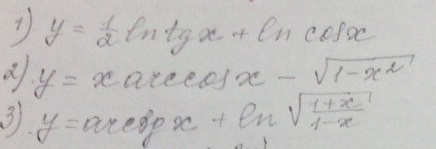 1) y = 1/2 ln tg x + ln cos x
2) y = x arccos x − √(1−x²)
3) y = arctg x + ln √((1+x)/(1−x))